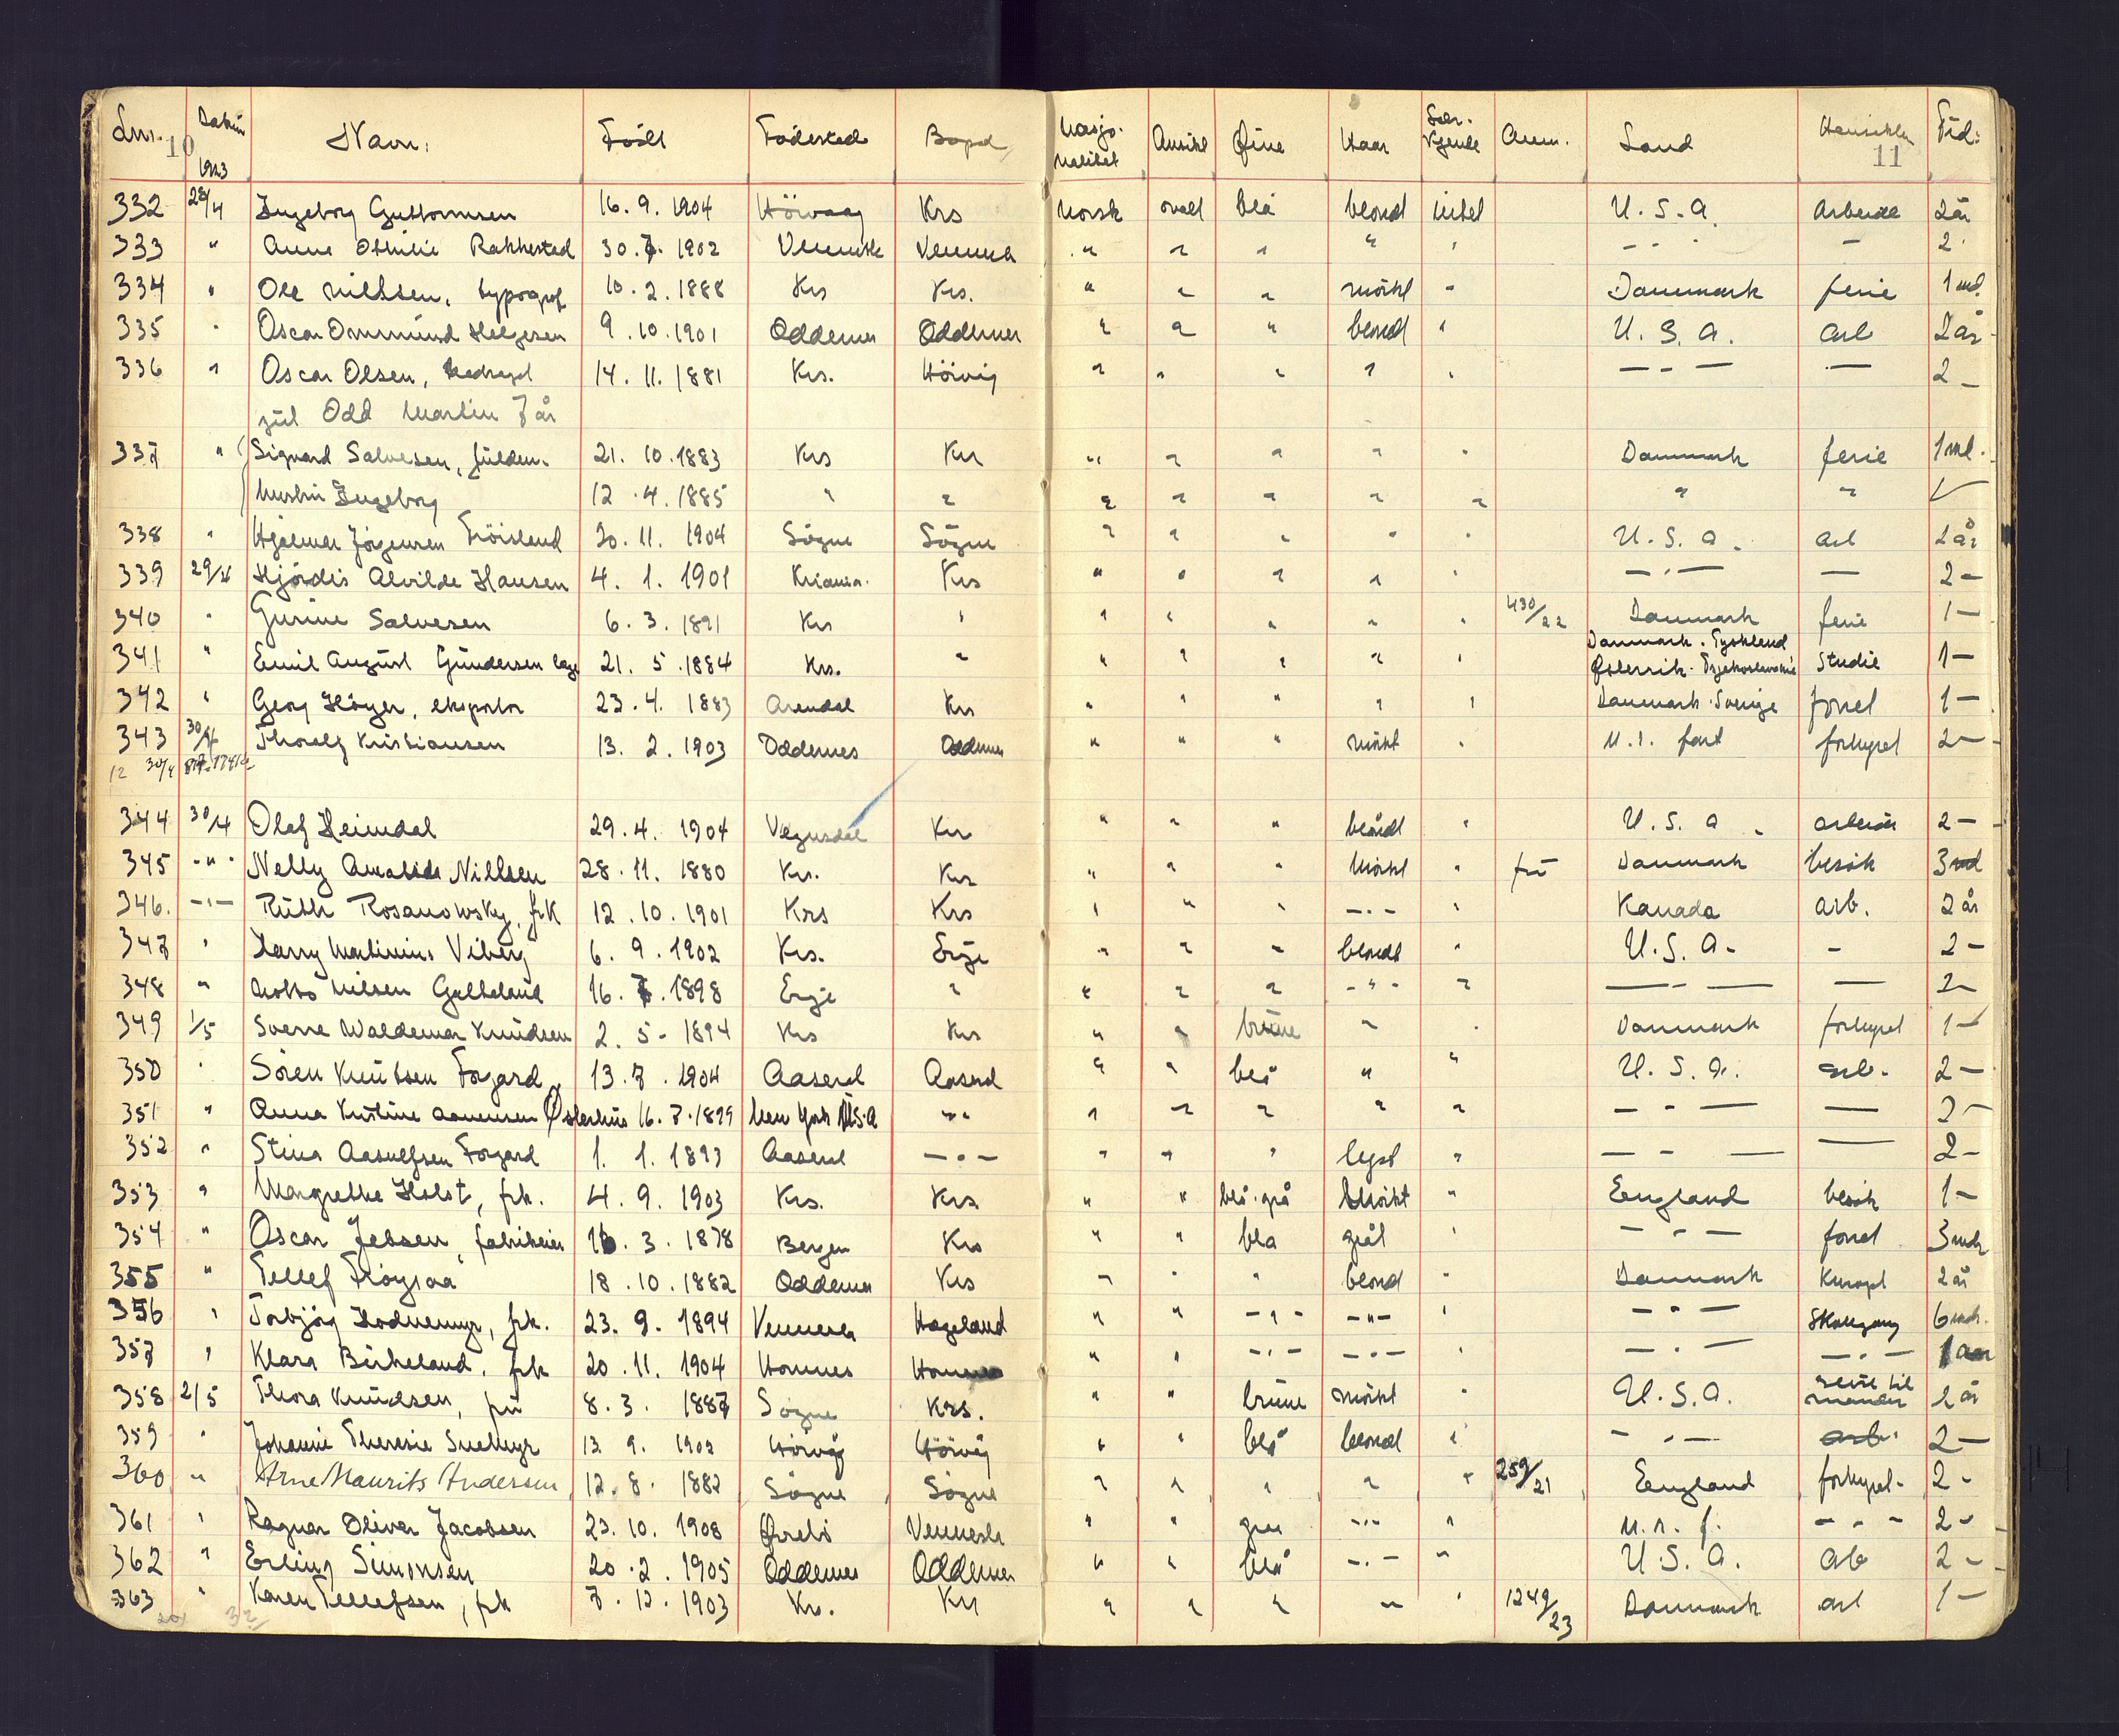 Lnr. 10 Datum 1923 Navn: Födt Födested Bopæl Nasjonalitet Ansikt Øine Haar Sær. Kjende Anm. Land Hensikten 11 Tid:
332 28/4 Ingeborg Guttormsen 16. 9. 1904 Hörvaag Krs Norsk ovalt blå blond intet U.S.A. Arbeide 2 år
333 " Anne Othilie Rakkestad 30. 7. 1902 Vennesla Vennesla " " " " " - - - - 2 "
334 " Ole Nilssen, typograf 10. 2. 1888 Krs Krs. " " " mörkt " Danmark ferie 1 md.
335 " Oscar Ommund Helgesen 9. 10. 1901 Oddernes Oddernes " " " blondt " U.S.A. arb 2 år
336 " Oscar Olsen, 14. 11. 1881 Krs. Höivåg " " " " " — - — — 2 -
gut Odd Martin 7 år
337 " Sigvard Salvesen, fuldm. 21. 10. 1883 Krs Krs " " " " " Danmark ferie 1 md.
hustru Ingeborg 12. 4. 1885 " " " " " " " " "
338 " Hjalmar Jörgensen Tröisland 20. 11. 1904 Sögne Sögne " " " " " U.S.A. arb 2 år
339 29/4 Hjördis Alvilde Hansen 4. 1. 1901 Kriania. Krs " " " " " — - — — 2 —
340 " Gurine Salvesen 6. 3. 1891 Krs " " " " " " 430/22 Danmark ferie 1 —
341 " Emil August Gundersen læge 21. 5. 1884 Krs. " " " " " " Danmark. Tyskland Østerrik. Tsjekoslovakie Studie 1 —
342 " Georg Höyer, ekspeditör 23. 4. 1883 Arendal Krs " " " " " Danmark. Sverige forret 1 —
343 30/4 Thorolf Kristiansen 13. 2. 1903 Oddernes Oddernes " " " mörkt " U.r. fart forhyret 2 —
12 30/4
344 30/4 Olaf Heimdal 29. 4. 1904 Vegusdal Krs " " " blondt " U.S.A. arbeide 2 —
345 - " - Nelly Amalide Nilssen 28. 11. 1880 Krs. Krs " " " mörkt " fru Danmark besök 3 md
346. - " - Ruth Rosanowsky, frk 12. 10. 1901 Krs Krs " " " - " - " Kanada arb. 2 år
347 " Harry Martinius Viberg 6. 9. 1902 Krs. Evje " " " blondt " U.S.A. - 2 -
348 " Nilsen Gautheland 16. 7. 1898 Evje " " " " - " - " — - — — 2 -
349 1/5 Sverre Waldemar Knudsen 2. 5. 1894 Krs Krs " " brune " " Danmark forhyret 1 -
350 " Sören Knutsen Forgard 13. 7. 1904 Aaseral Aaseral " " blå " " U.S.A. arb. 2 —
351 " Anna Kristine Aanensen Österhus 16. 7. 1899 New York U.S.A " " " " " " " — - — — 2 -
352 " Stina Aasulfsen Forgard 1. 1. 1893 Aaseral - " - " " " lyst " — - — — 2 -
353 " Margrethe Holst, frk. 4. 9. 1903 Krs. Krs. " " blå-grå mörkt " England besök 1 -
354 " Oscar Jebsen, fabrikeier 16. 3. 1878 Bergen Krs " " blå grå " - " - forret 3 mdr
355 " Tellef Höyjaa 18. 10. 1882 Oddernes Krs " " " blond " Danmark 2 år
356 " Torbjörg Hodnemyr, frk. 23. 9. 1894 Vennesla Hægeland " " - " - - " - " - " - Skolegang 6 mdr.
357 " Klara Birkeland, frk 20. 11. 1904 Homnes Homnes " " - " - - " - " - " - - " - 1 aar
358 2/5 Thora Knudsen, fru 8. 3. 1887 Sögne Krs. " " brune mörkt " U.S.A. reise til manden 2 år
359 " Johanne Theresie 13. 9. 1902 Höivåg Höivåg " " blå blond " - " - arb. 2 —
360 " Arne Maurits Andersen 12. 8. 1882 Sögne Sögne " " " " " 259/21 England forhyret. 2 -
361 " Ragnar Oliver Jacobsen 23. 10. 1908 Øvrebö Vennesla " " grå - " - " U.r.f. - - - 2 -
362 " Erling Simonsen 20. 2. 1905 Oddernes Oddernes " " blå - " - " U.S.A. arb 2 -
363 " Karen Tellefsen, frk 7. 12. 1903 Krs. Krs " " " " " 1249/23 Danmark arb 1 —